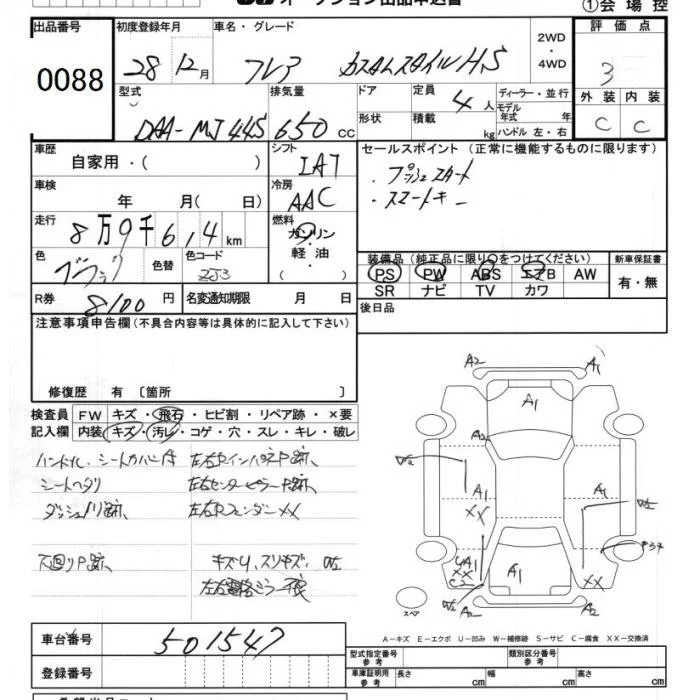 オークション出品申込書
①会場控
出品番号 初度登録年月 車名・グレード 評価点
0088
28 12月 フレア カスタムスタイルHS 2WD・4WD 3
型式 排気量 ドア 定員 4人 ディーラー・並行 外装 内装
DAA-MJ44S 650cc 形状 積載 kg モデル年式 年 C C
ハンドル 左・右
車歴 シフト セールスポイント (正常に機能するものに限ります)
自家用・( ) IAT ・プッシュスタート
車検 冷房 ・スマートキー
年 月( 日) AAC
走行 燃料
8万9千614km ガソリン
軽油・( )
色 色替 色コード 装備品(純正品に限り○をつけてください) 新車保証書
ブラック ZJ3 PS PW ABS エアB AW 有・無
SR ナビ TV カワ
R券 8100円 名変通知期限 月 日 後日品
注意事項申告欄(不具合内容等は具体的に記入して下さい)
修復歴 有〔箇所 〕
検査員 FW キズ・飛石・ヒビ割・リペア跡・×要
記入欄 内装 キズ・汚レ・コゲ・穴・スレ・キレ・破レ
シートヘタリ 左右センターピラーP跡、
左右フェンダーXX
下回りP跡、
A2 A1
A1
A2
A1 A1
XX
A1
XX C2 XX
A2
スペア
A-キズ E-エクボ U-凹み W-補修跡 S-サビ C-腐食 XX-交換済
車台番号 501547 型式指定番号 参考 類別区分番号 参考
登録番号 車庫証明用 参考 長さ cm 幅 cm 高さ cm